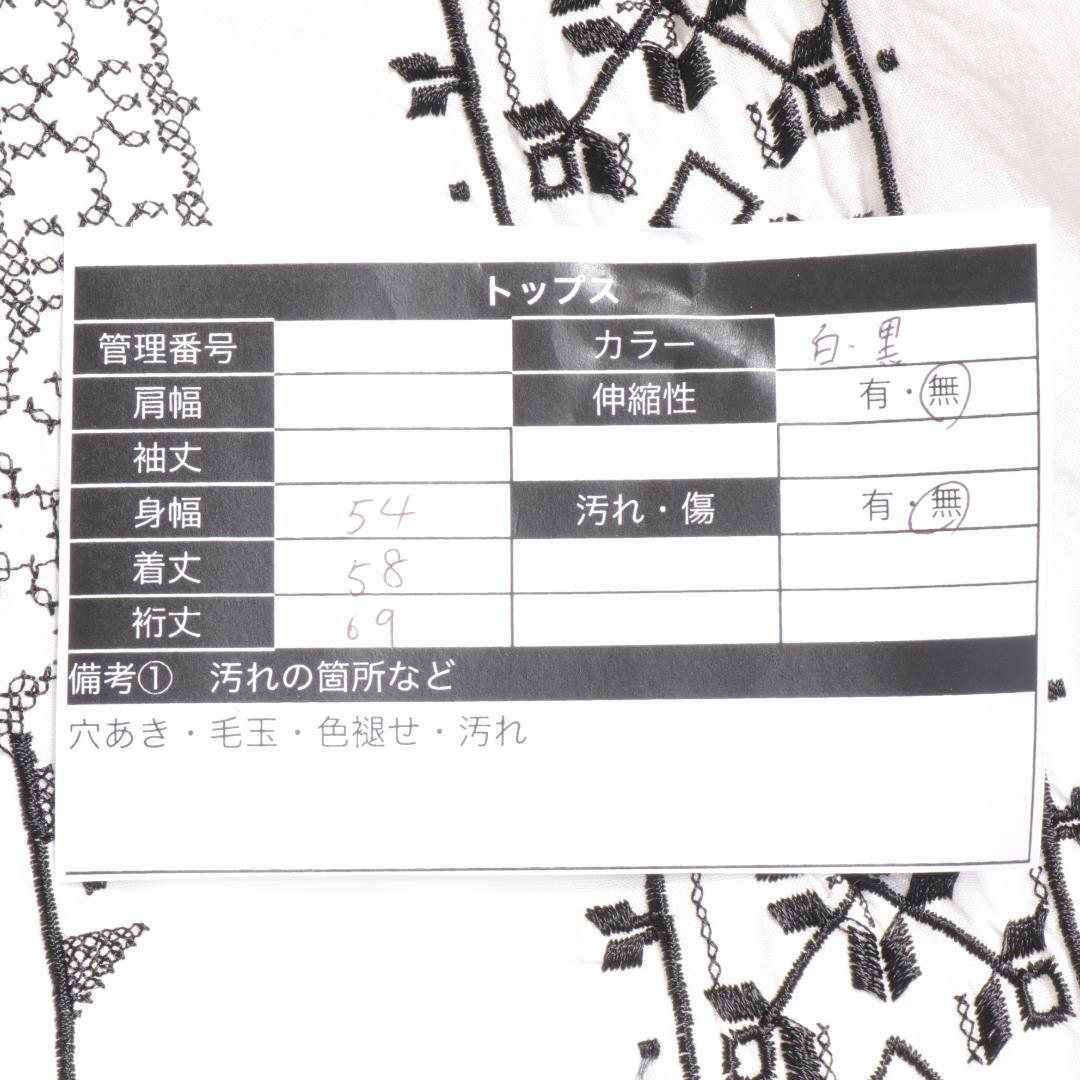 トップス
管理番号 カラー 白・黒
肩幅 伸縮性 有・無
袖丈
身幅 54 汚れ・傷 有・無
着丈 58
裄丈 69
備考① 汚れの箇所など
穴あき・毛玉・色褪せ・汚れ